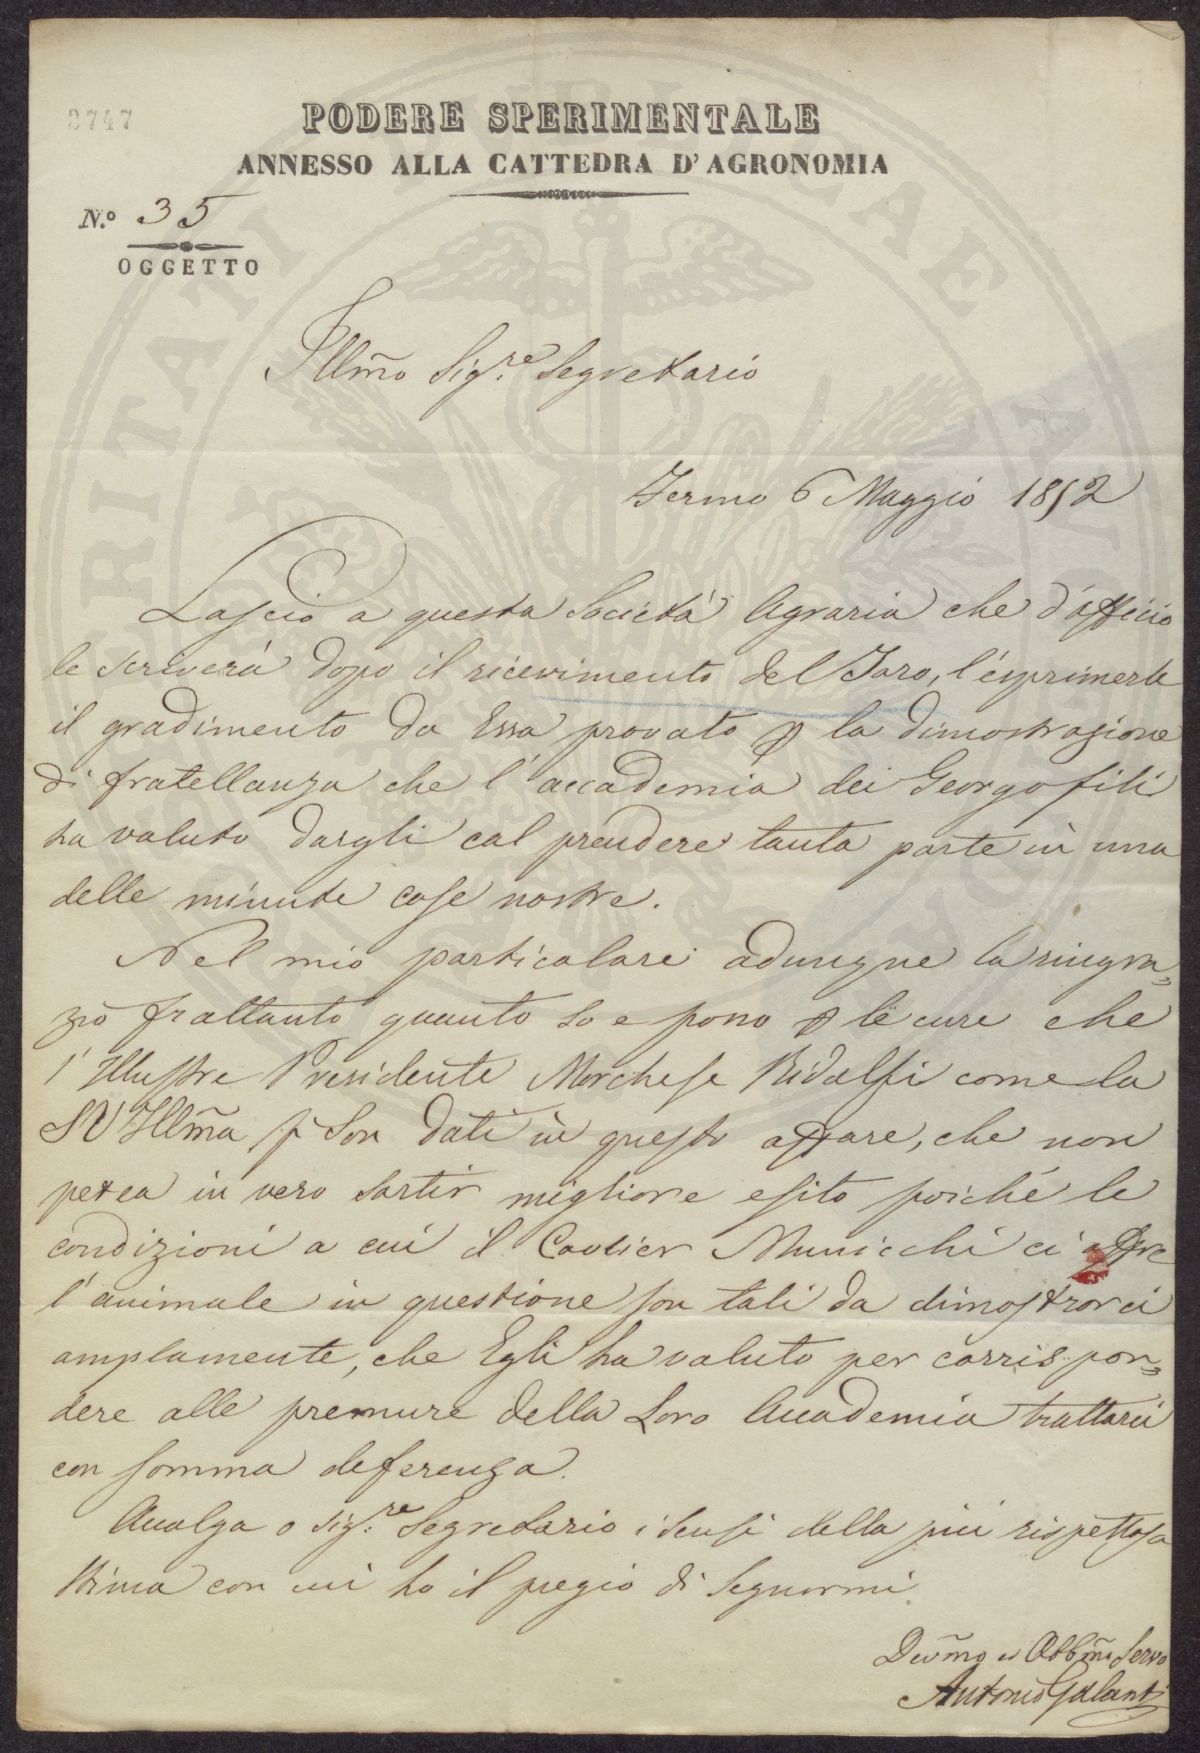 8747
PODERE SPERIMENTALE
ANNESSO ALLA CATTEDRA D'AGRONOMIA
N.º 35
OGGETTO
Illm̃o Sig.re Segretario
Fermo 6 Maggio 1852
Lascio a questa Società Agraria che d'officio
le scriverà dopo il ricevimento del Toro, l'esprimerle
il gradimento da Essa provato p la dimostrazione
di fratellanza che l'accademia dei Georgofili
ha valuto dargli cal prendere tanta parte in una
delle minute cose nostre.
Nel mio particolare adunque la ringra=
zio frattanto quanto so e posso p le cure che
l'Illustre Presidente Marchese Ridolfi come la
SV Illm̃a si son dati in questo affare, che non
potea in vero sortir migliore esito poiché le
condizioni a cui il Cavlier Municchi ci offre
l'animale in questione son tali da dimostrarci
amplamente, che Egli ha valuto per corrispon=
dere alle premure della Loro Accademia trattarci
con somma deferenza.
Accolga o Sig.re Segretario i sensi della più rispettosa
stima con cui ho il pregio di segnarmi
Devm̃o ed Obbm̃o Servo
Antonio Galanti